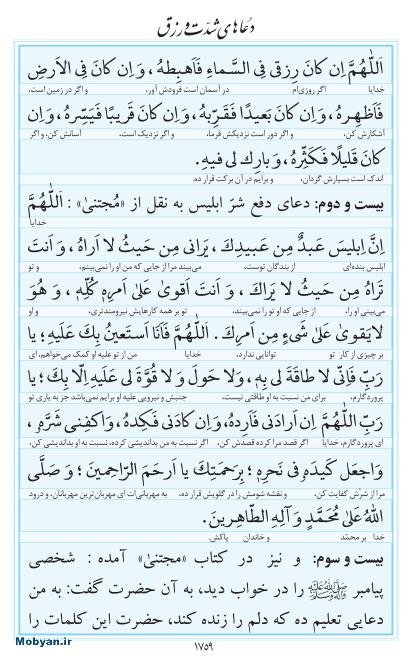 دعاهای شدّت و رزق
اَللّٰهُمَّ اِن كانَ رِزقى فِى السَّماءِ فَاَهبِطهُ، وَاِن كانَ فِى الاَرضِ
خدایا اگر روزی‌ام در آسمان است فرودش آور، و اگر در زمین است،
فَاَظهِرهُ، وَاِن كانَ بَعيدًا فَقَرِّبهُ، وَاِن كانَ قَريبًا فَيَسِّرهُ، وَاِن
آشکارش کن، و اگر دور است نزدیکش فرما، و اگر نزدیک است، آسانش کن، و اگر
كانَ قَليلًا فَكَثِّرهُ، وَبارِك لى فيهِ.
اندک است بسیارش گردان، و برایم در آن برکت قرار ده.
بیست و دوم: دعای دفع شرّ ابلیس به نقل از «مُجتنیٰ»: اَللّٰهُمَّ
خدایا
اِنَّ اِبليسَ عَبدٌ مِن عَبيدِكَ، يَرانى مِن حَيثُ لا اَراهُ، وَ اَنتَ
ابلیس بنده‌ای از بندگان توست، می‌بیند مرا از جایی که من او را نمی‌بینم، و تو
تَراهُ مِن حَيثُ لا يَراكَ، وَ اَنتَ اَقوىٰ عَلىٰ اَمرِهِ كُلِّهِ، وَ هُوَ
می‌بینی او را، از جایی که او تو را نمی‌بیند، و تو بر همه کارهایش نیرومندتری، و او
لايَقوىٰ عَلىٰ شَىءٍ مِن اَمرِكَ. اَللّٰهُمَّ فَاَنَا اَستَعينُ بِكَ عَلَيهِ؛ يا
بر چیزی از کار تو توانایی ندارد، خدایا من از تو علیه او کمک می‌خواهم، ای
رَبِّ فَاِنّى لا طاقَةَ لى بِهِ، وَلا حَولَ وَ لا قُوَّةَ لى عَلَيهِ اِلّا بِكَ؛ يا
پروردگارم، برای من نسبت به او طاقتی نیست، جنبش و نیرویی علیه او برایم نمی‌باشد جز به یاری تو
رَبِّ اَللّٰهُمَّ اِن اَرادَنى فَاَرِدهُ، وَاِن كادَنى فَكِدهُ، وَاكفِنى شَرَّهُ،
ای پروردگارم، خدایا اگر قصد مرا کرده قصدش کن، اگر نسبت به من بداندیشی کرده، نسبت به او بداندیشی کن،
وَاجعَل كَيدَهُ فى نَحرِهِ؛ بِرَحمَتِكَ يا اَرحَمَ الرّاحِمينَ؛ وَ صَلَّى
مرا از شرّش کفایت کن، و نقشه شومش را در گلویش قرار ده، به مهربانی‌ات ای مهربان‌ترین مهربانان، و درود
اللهُ عَلىٰ مُحَمَّدٍ وَ آلِهِ الطّاهِرينَ.
خدا بر محمّد و خاندان پاکش.
بیست و سوم: و نیز در کتاب «مجتنیٰ» آمده: شخصی
پیامبر ﷺ را در خواب دید، به آن حضرت گفت: به من
دعایی تعلیم ده که دلم را زنده کند، حضرت این کلمات را
۱۷۵۹
Mobyan.ir